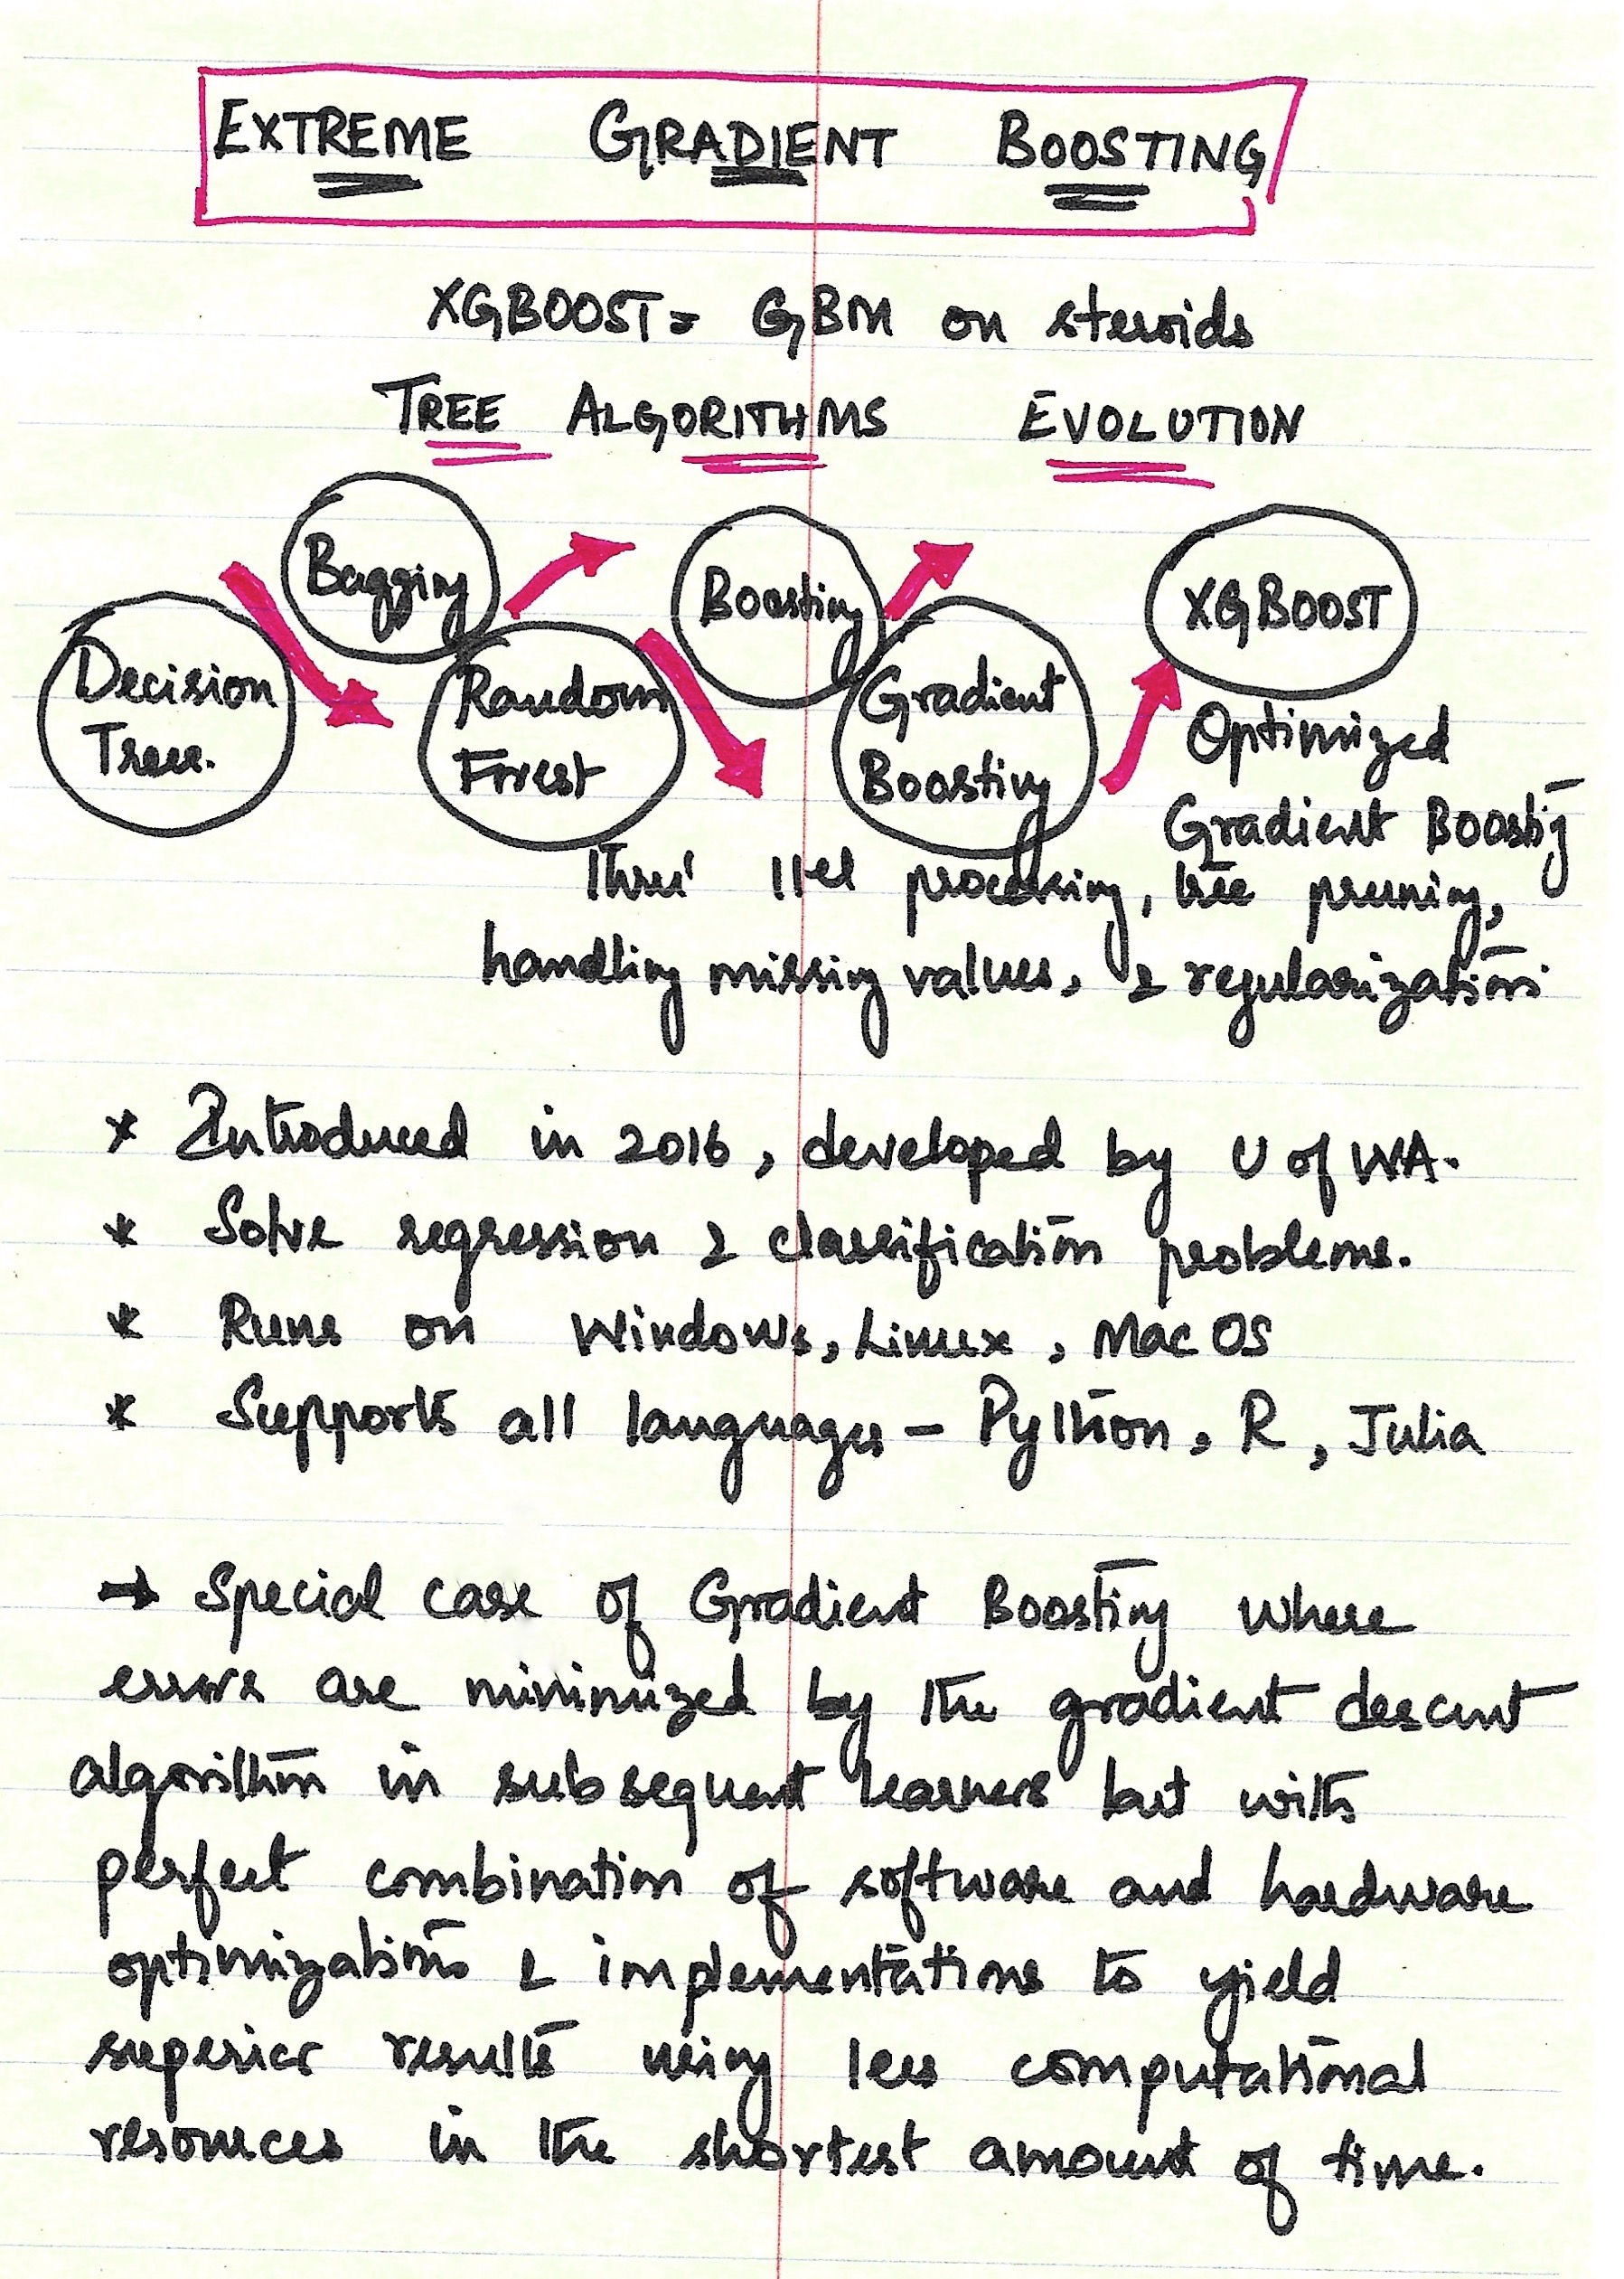 EXTREME GRADIENT BOOSTING
XGBOOST = GBM on steroids
TREE ALGORITHMS EVOLUTION
Decision
Tree.
Bagging
Random
Forest
Boosting
Gradient
Boosting
XGBOOST
Optimized
Gradient Boosting
thru' ||el processing, tree pruning,
handling missing values, & regularization.
* Introduced in 2016, developed by U of WA.
* Solve regression & classification problems.
* Runs on Windows, Linux, Mac OS
* Supports all languages - Python, R, Julia
→ Special case of Gradient Boosting where
errors are minimized by the gradient descent
algorithm in subsequent learners but with
perfect combination of software and hardware
optimizations & implementations to yield
superior results using less computational
resources in the shortest amount of time.